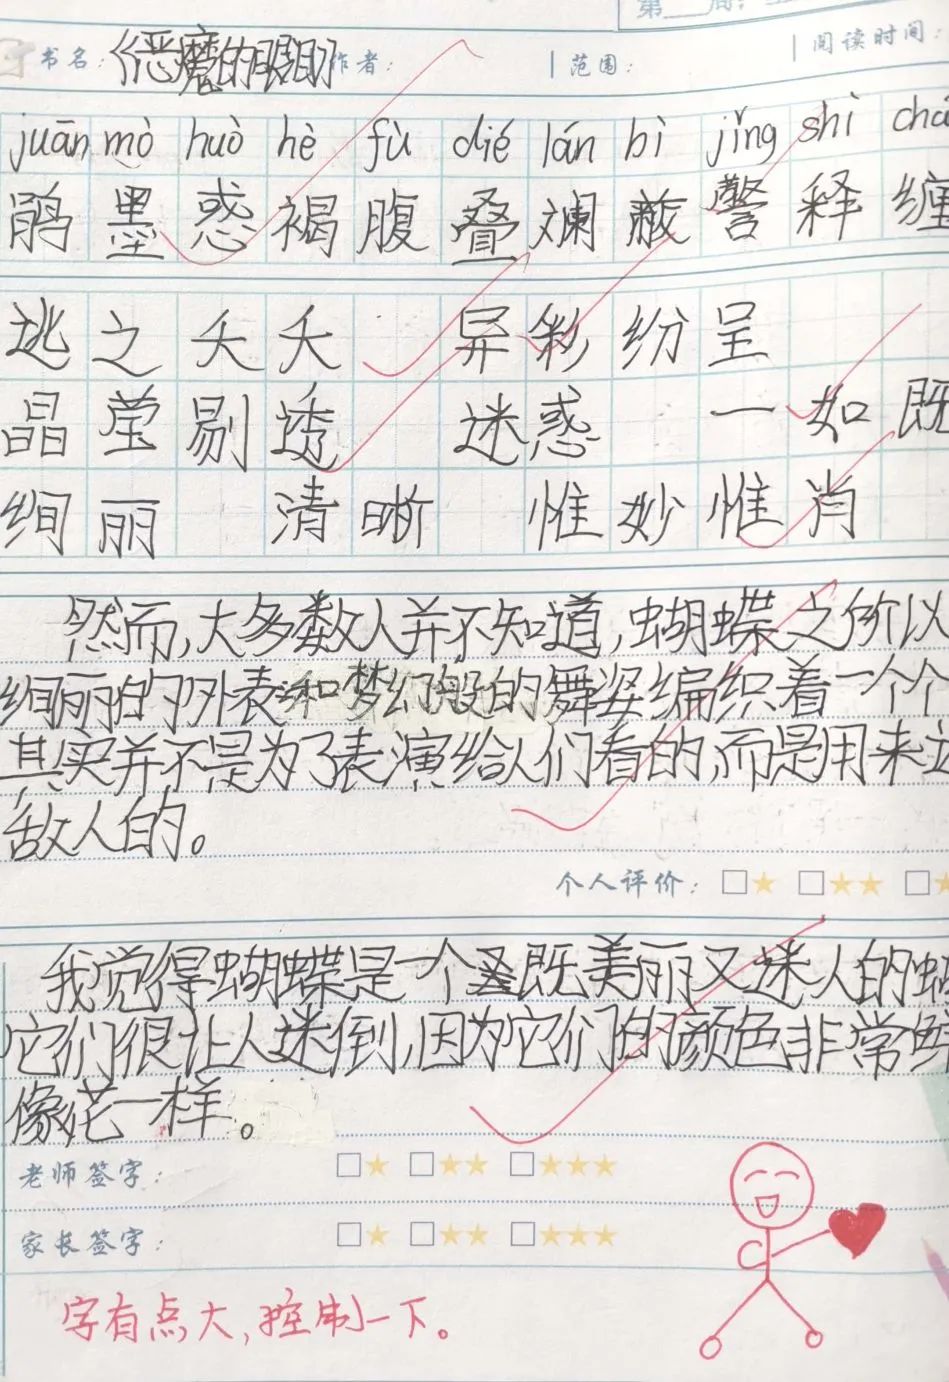 第 周:
书名:《恶魔的眼睛》作者: 范围: 阅读时间:
juān mò huò hè fù dié lán bì jǐng shì chá
鹃 墨 惑 褐 腹 叠 斓 蔽 警 释 缠
逃之夭夭 异彩纷呈
晶莹剔透 迷惑 一如既
绚丽 清晰 惟妙惟肖
然而,大多数人并不知道,蝴蝶之所以
绚丽的外表和梦幻般的舞姿编织着一个个
其实并不是为了表演给人们看的,而是用来
敌人的。
个人评价: □★ □★★ □★
我觉得蝴蝶是一个既美丽又迷人的
它们很让人迷倒,因为它们的颜色非常鲜
像花一样。
老师签字: □★ □★★ □★★★
家长签字: □★ □★★ □★★★
字有点大,控制一下。